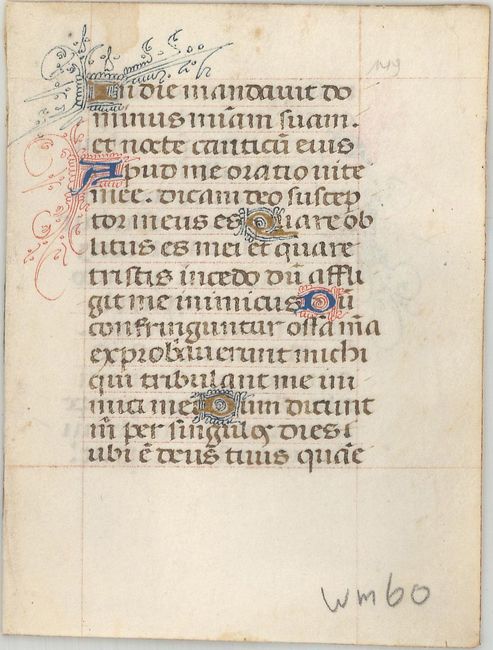 In die mandavit do
minus mīam suam.
et nocte canticū eius
Apud me oratio vite
mee. dicam deo suscep
tor meus es Quare ob
litus es mei et quare
tristis incedo dū affli
git me inimicus Dū
confringuntur ossa m̄a
exprobaverunt michi
qui tribulant me ini
mici mei Dum dicunt
m̄ per singulos dies
ubi ē deus tuus quare
wm60